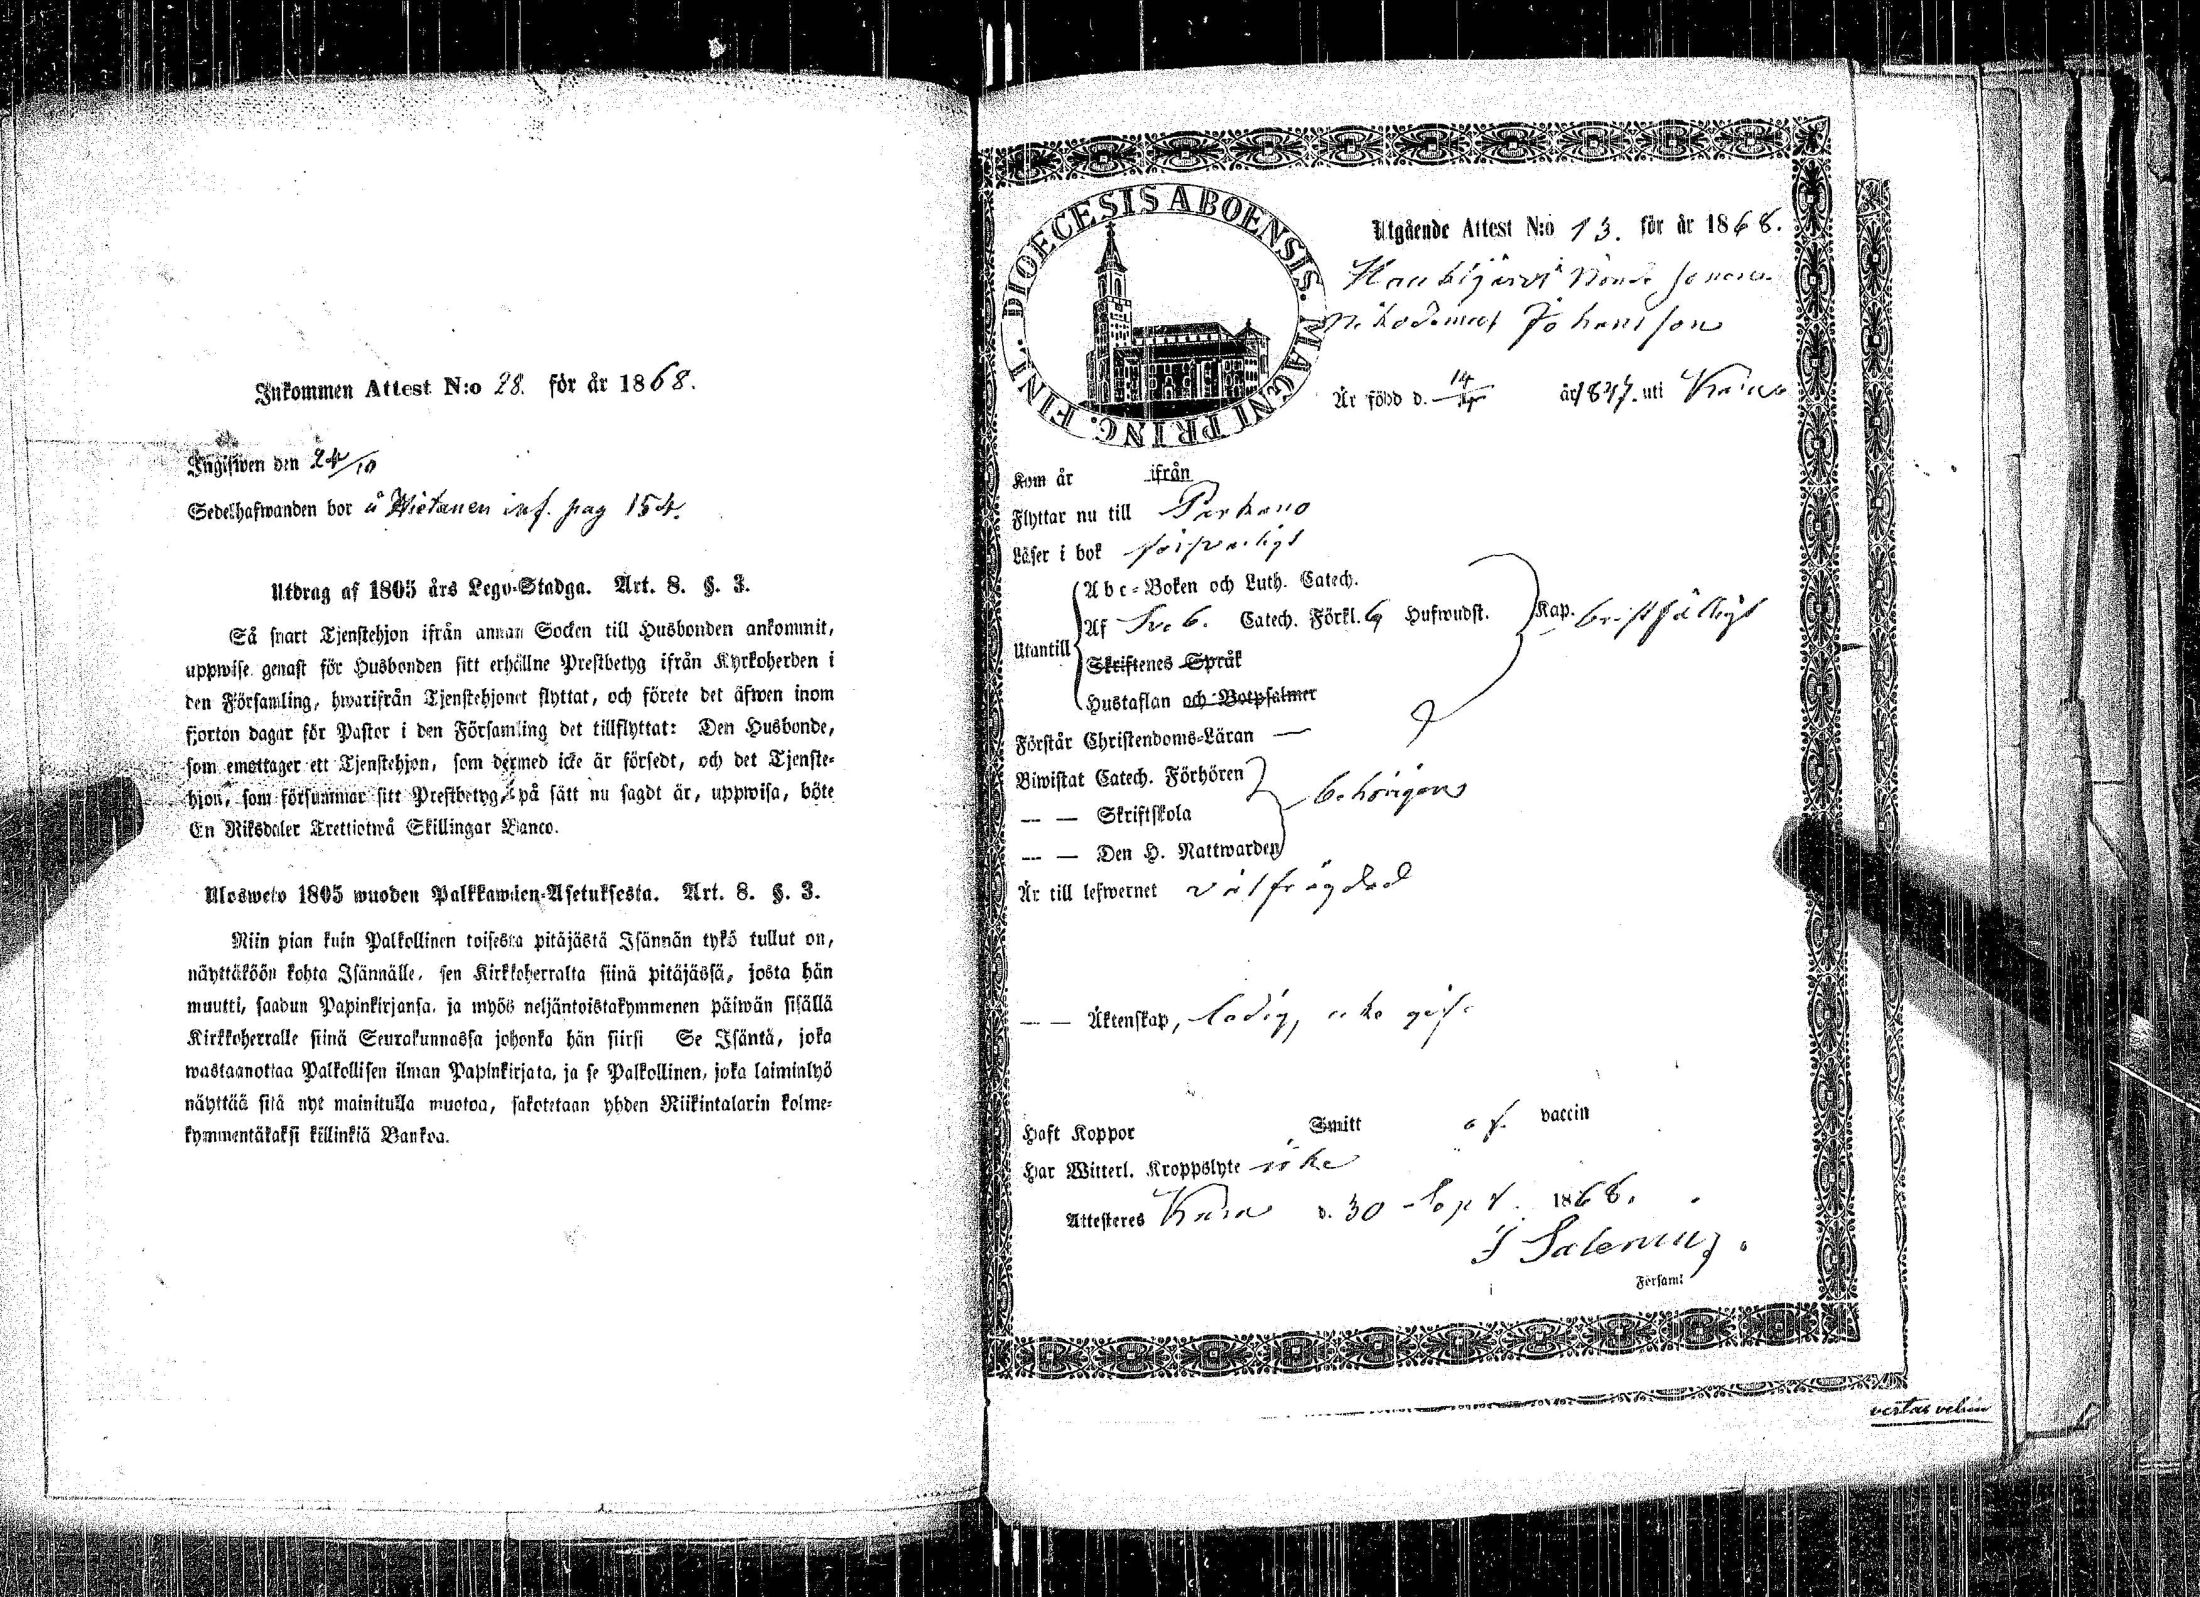 Inkommen Attest N:o 28. för år 1868.
Ingifwen den 24/10
Sedelhafwanden bor å inf. pag 154.
Utdrag af 1805 års Lego-Stadga. Art. 8. §. 3.
Så snart Tjenstehjon ifrån annan Socken till Husbonden ankommit,
uppwise genast för Husbonden sitt erhållne Prestbetyg ifrån Kyrkoherden i
den Församling, hwarifrån Tjenstehjonet flyttat, och förete det äfwen inom
fjorton dagar för Pastor i den Församling det tillflyttat: Den Husbonde,
som emottager ett Tjenstehjon, som dermed icke är försedt, och det Tjenste-
hjon, som försummar sitt Prestbetyg, på sätt nu sagdt är, uppwisa, böte
En Riksdaler Trettiotwå Skillingar Banco.
Ulosweto 1805 wuoden Palkkawäen-Asetuksesta. Art. 8. §. 3.
Niin pian kuin Palkollinen toisesta pitäjästä Isännän tykö tullut on,
näyttäköön kohta Isännälle, sen Kirkkoherralta siinä pitäjässä, josta hän
muutti, saadun Papinkirjansa, ja myös neljäntoistakymmenen päiwän sisällä
Kirkkoherralle siinä Seurakunnassa johonka hän siirsi Se Isäntä, joka
wastaanottaa Palkollisen ilman Papinkirjata, ja se Palkollinen, joka laiminlyö
näyttää sitä nyt mainitulla muotoa, sakotetaan yhden Riikintalarin kolme-
kymmentäkaksi killinkiä Bankoa.
DIOECESIS ABOENSIS. MAGNI PRINC. FINL.
Utgående Attest N:o 13. för år 1868.
Johansson
Är född d. 14 år 1847. uti
Kom år ifrån
Flyttar nu till Parkano
Läser i bok försvarligt
Abc-Boken och Luth. Catech.
Af Sveb. Catech. Förkl. 6 Hufwudst. Kap. bristfälligt
Utantill
Skriftenes Språk
Hustaflan och Botpsalmer
Förstår Christendoms-Läran —
Biwistat Catech. Förhören
— — Skriftskola behörigen
— — Den H. Nattwarden
Är till lefwernet välfrägdad
— — Äktenskap, ledig, icke gift
Haft Koppor Smitt af vaccin
Har Witterl. Kroppslyte icke
Attesteres d. 30 Sept. 1868.
J Salenius.
Församl